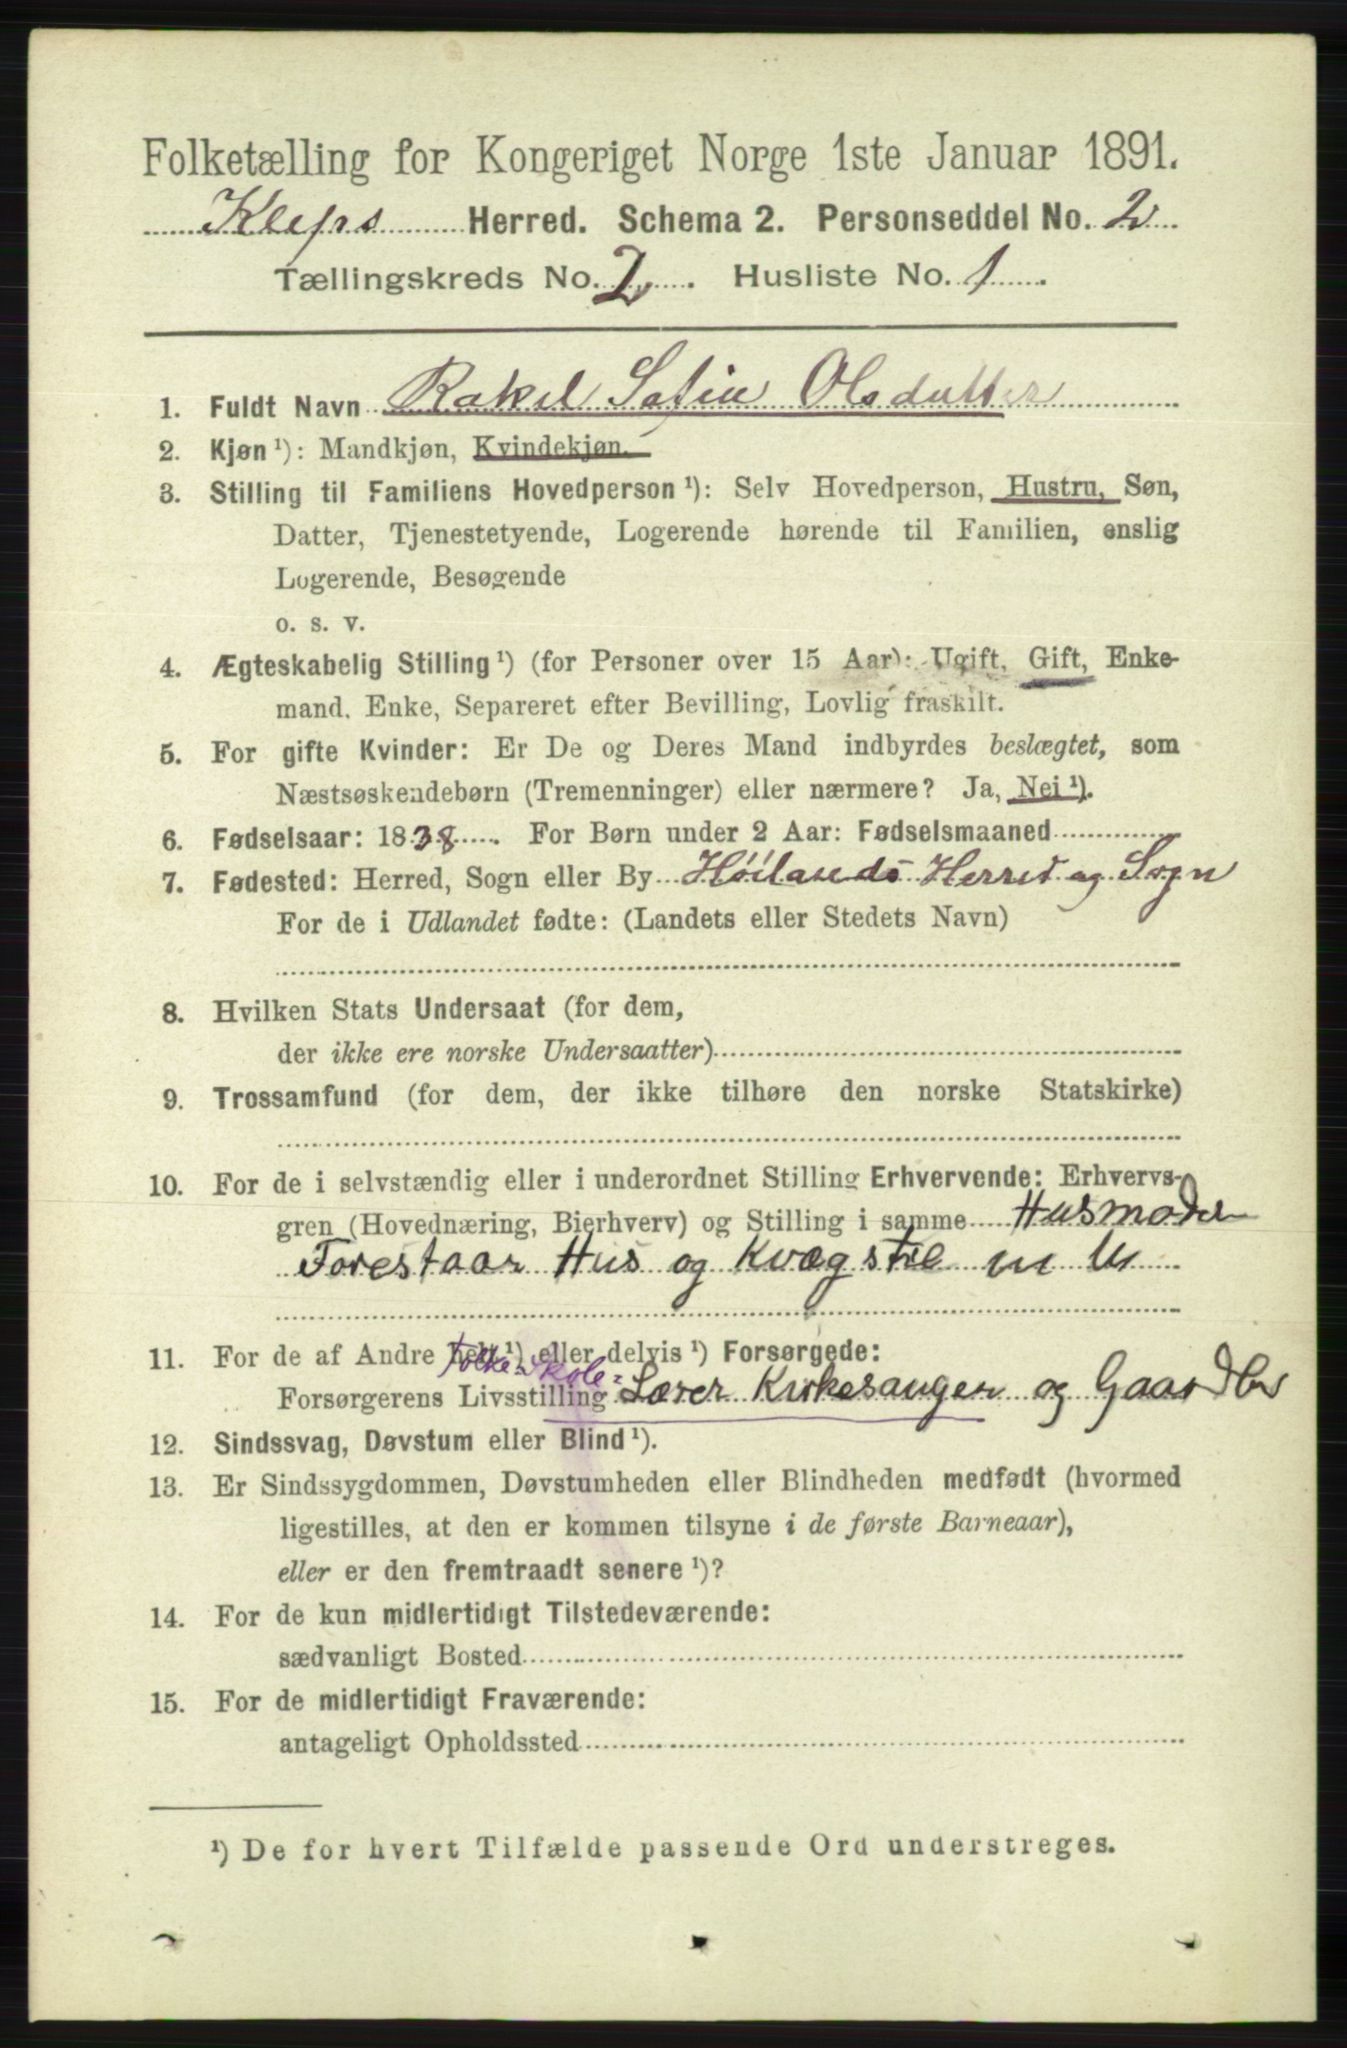 Folketælling for Kongeriget Norge 1ste Januar 1891.
Kleps Herred. Schema 2. Personseddel No. 2
Tællingskreds No. 2. Husliste No. 1.
1. Fuldt Navn Rakel Sofie Olsdatter
2. Kjøn ¹): Mandkjøn, Kvindekjøn.
3. Stilling til Familiens Hovedperson ¹): Selv Hovedperson, Hustru, Søn,
Datter, Tjenestetyende, Logerende hørende til Familien, enslig
Logerende, Besøgende
o. s. v.
4. Ægteskabelig Stilling ¹) (for Personer over 15 Aar): Ugift, Gift, Enke-
mand, Enke, Separeret efter Bevilling, Lovlig fraskilt.
5. For gifte Kvinder: Er De og Deres Mand indbyrdes beslægtet, som
Næstsøskendebørn (Tremenninger) eller nærmere? Ja, Nei ¹).
6. Fødselsaar: 1838. For Børn under 2 Aar: Fødselsmaaned
7. Fødested: Herred, Sogn eller By Höilands Herred og Sogn
For de i Udlandet fødte: (Landets eller Stedets Navn)
8. Hvilken Stats Undersaat (for dem,
der ikke ere norske Undersaatter)
9. Trossamfund (for dem, der ikke tilhøre den norske Statskirke)
10. For de i selvstændig eller i underordnet Stilling Erhvervende: Erhvervs-
gren (Hovednæring, Bierhverv) og Stilling i samme Husmoder
Forestaar Hus og Kvægstel m M
11. For de af Andre helt ¹) eller delvis ¹) Forsørgede:
Folkeskole-
Forsørgerens Livsstilling Lærer Kirkesanger og Gaardbr
12. Sindssvag, Døvstum eller Blind ¹).
13. Er Sindssygdommen, Døvstumheden eller Blindheden medfødt (hvormed
ligestilles, at den er kommen tilsyne i de første Barneaar),
eller er den fremtraadt senere ¹)?
14. For de kun midlertidigt Tilstedeværende:
sædvanligt Bosted
15. For de midlertidigt Fraværende:
antageligt Opholdssted
¹) De for hvert Tilfælde passende Ord understreges.